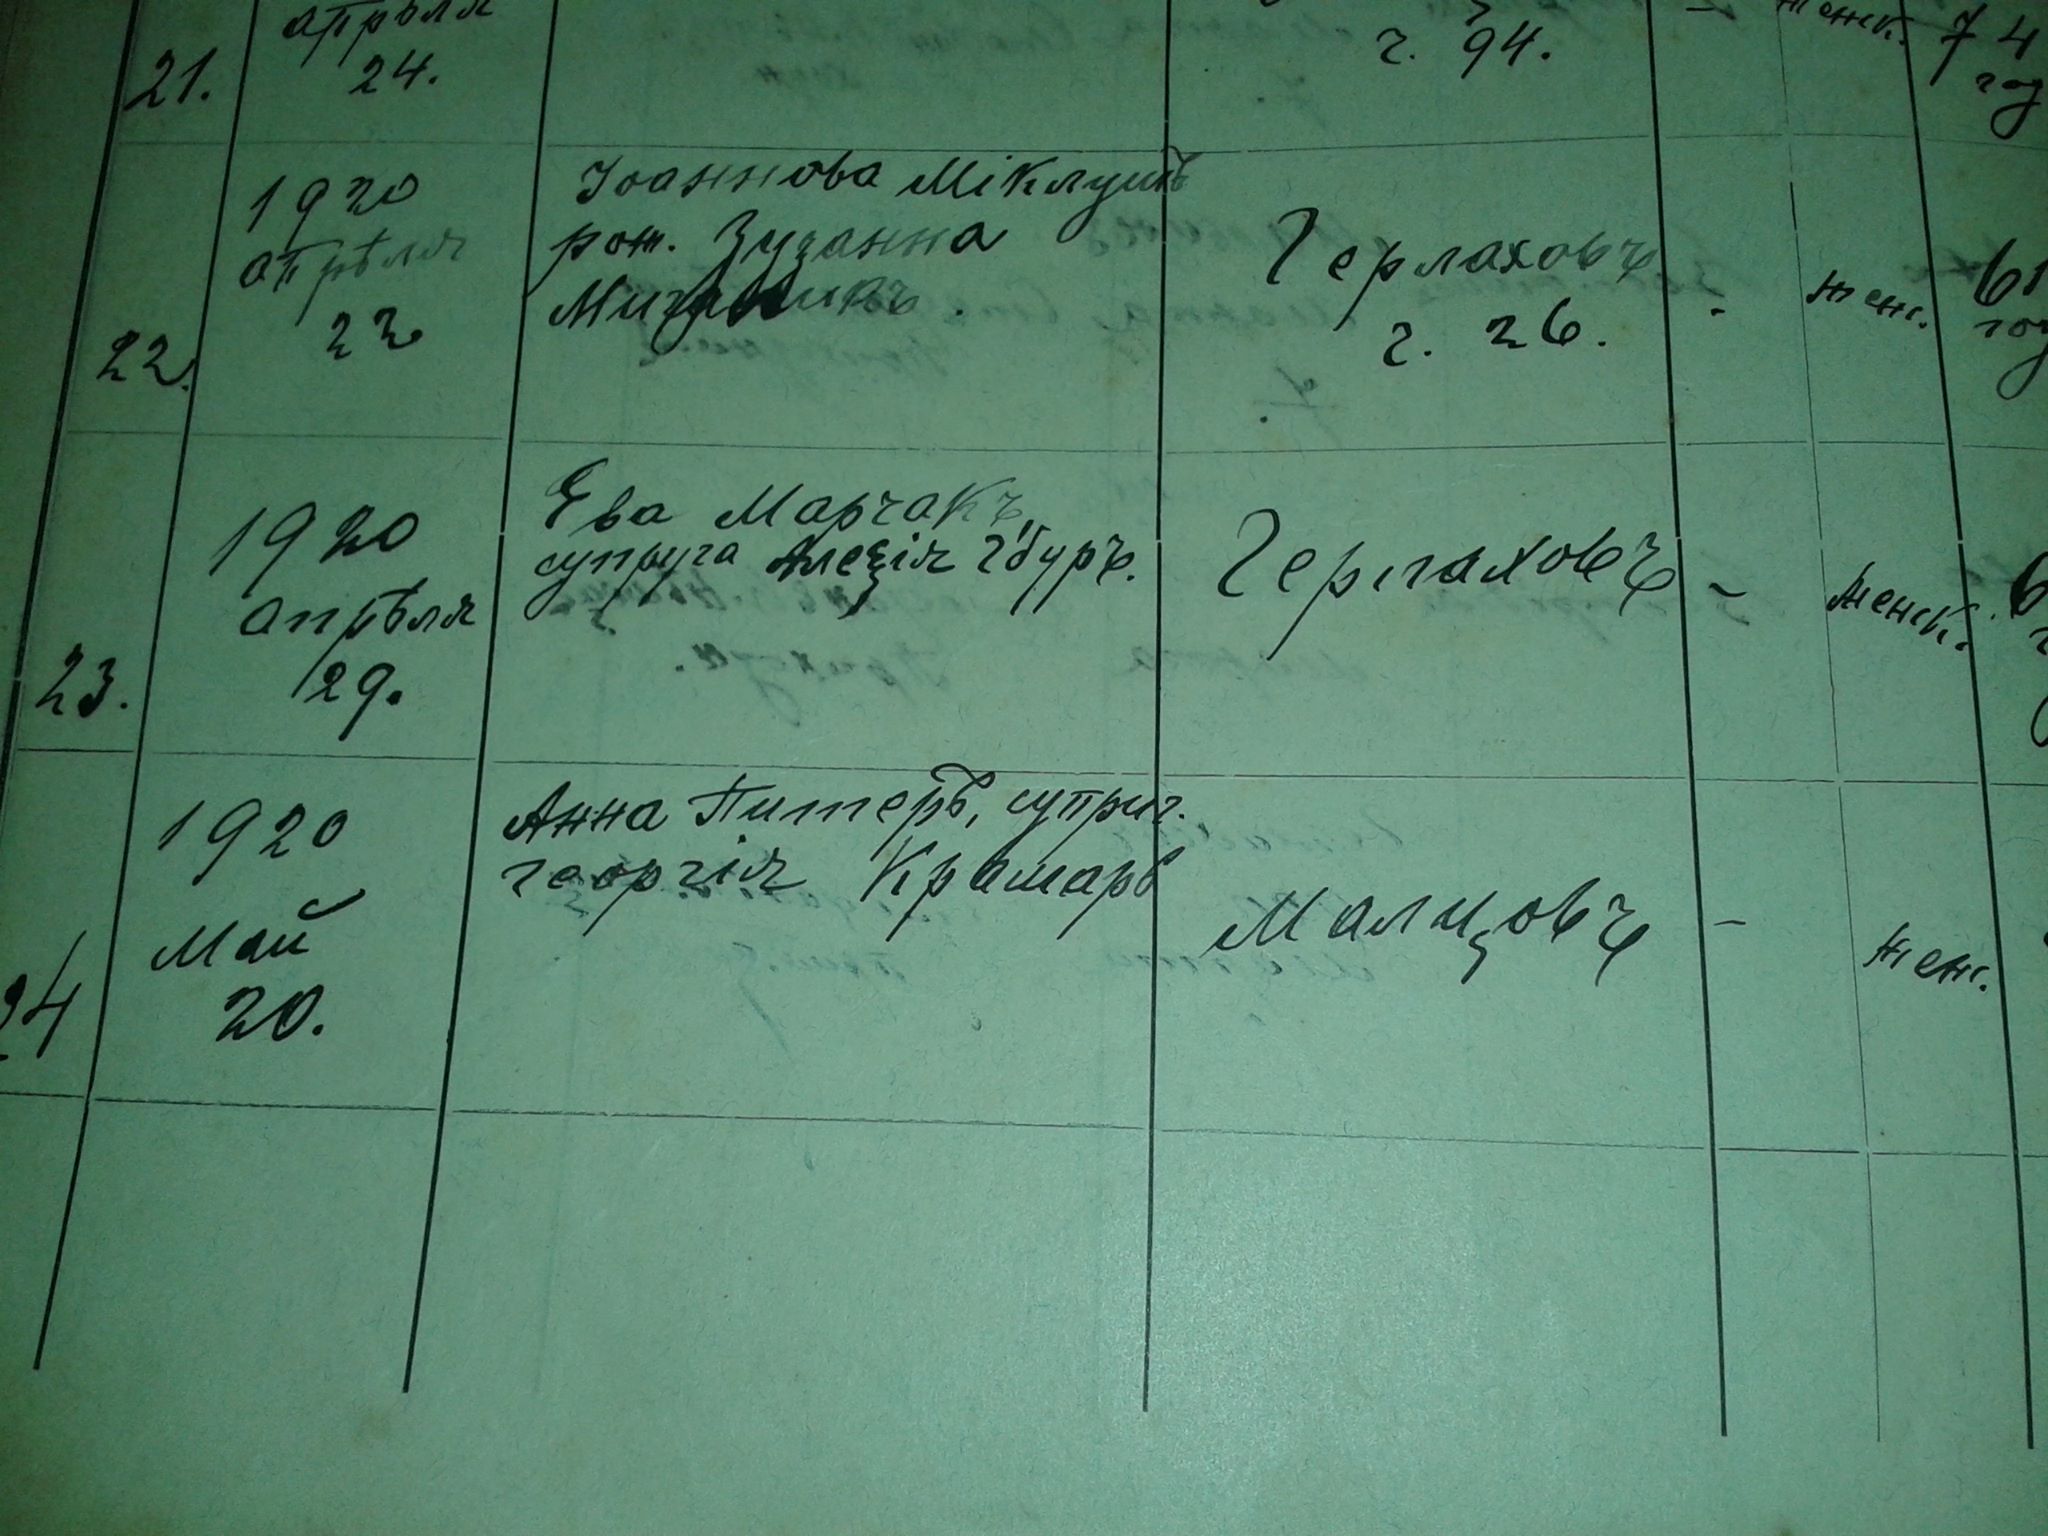 апрѣля
ч. 94.
женск.
74
21.
24.
год
1920
апрѣля
22
22.
Іоаннова Міклушъ
рож. Зузанна
Герлаховъ
ч. 26.
женс.
61
год
1920
апрѣля
29.
23.
Ева Марчакъ
супруга Алезія Гбуръ.
Герлаховъ
–
женск.
6
1920
Май
20.
24
Анна Питеръ, суприг.
георгія Крамаръ
Малцовъ
–
женс.